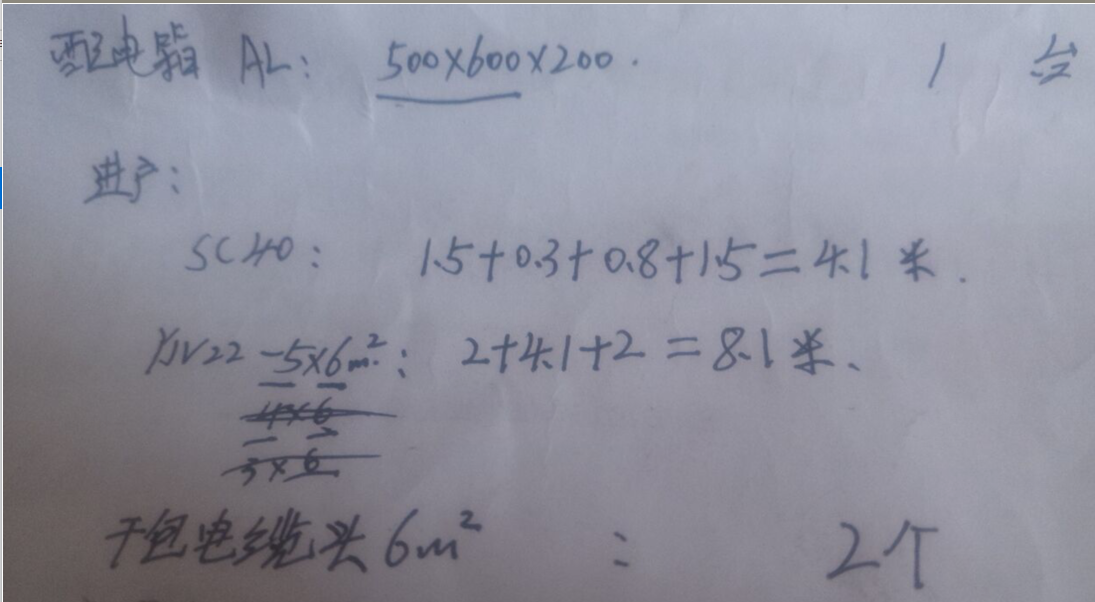 配电箱 AL: 500×600×200. 1 台
进户:
SC40: 1.5+0.3+0.8+1.5=4.1 米.
YJV22-5×6m²: 2+4.1+2=8.1米、
4×6
3×6
干包电缆头6m² : 2个